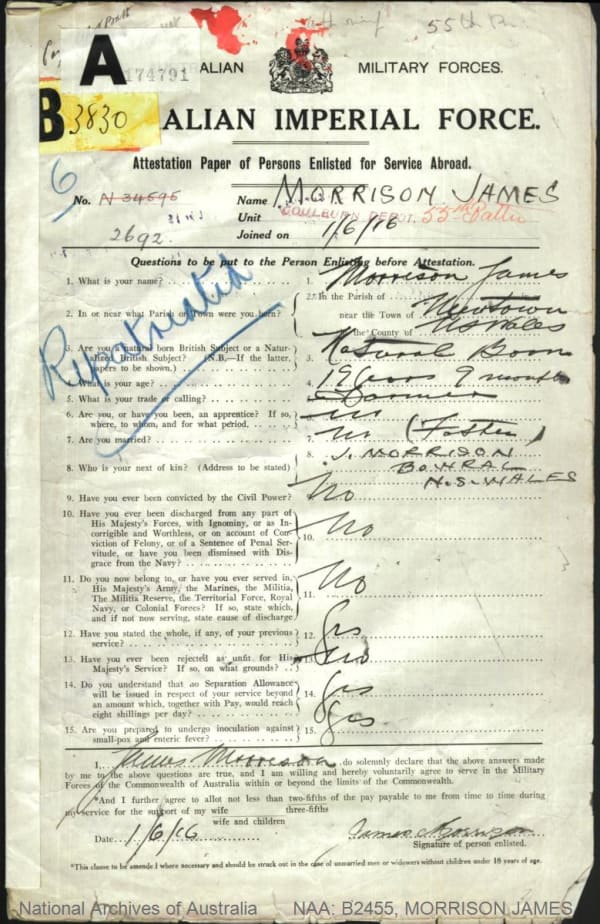 55th
A
174791
ALIAN MILITARY FORCES.
B
3830
ALIAN IMPERIAL FORCE.
Attestation Paper of Persons Enlisted for Service Abroad.
6
No. N 34595
2692
Name MORRISON JAMES
Unit GOULBURN DEPOT. 55th Battn
Joined on 1/6/16
Questions to be put to the Person Enlisting before Attestation.
Repatriated
1. What is your name? 1. Morrison James
2. In or near what Parish or Town were you born? 2. In the Parish of
near the Town of Newtown
the County of NS Wales
3. Are you a natural born British Subject or a Natur-
alized British Subject? (N.B.—If the latter,
papers to be shown.) 3. Natural Born
4. What is your age? 4. 19 years 9 months
5. What is your trade or calling? 5.
6. Are you, or have you been, an apprentice? If so,
where, to whom, and for what period. 6. No
7. Are you married? 7. No (Foster)
8. Who is your next of kin? (Address to be stated) 8. J. MORRISON
BOWRAL
N.S. WALES
9. Have you ever been convicted by the Civil Power? No
10. Have you ever been discharged from any part of
His Majesty's Forces, with Ignominy, or as In-
corrigible and Worthless, or on account of Con-
viction of Felony, or of a Sentence of Penal Ser-
vitude, or have you been dismissed with Dis-
grace from the Navy? 10. No
11. Do you now belong to, or have you ever served in,
His Majesty's Army, the Marines, the Militia,
The Militia Reserve, the Territorial Force, Royal
Navy, or Colonial Forces? If so, state which,
and if not now serving, state cause of discharge 11. No
12. Have you stated the whole, if any, of your previous
service? 12. Yes
13. Have you ever been rejected as unfit for His
Majesty's Service? If so, on what grounds? 13. No
14. Do you understand that no Separation Allowance
will be issued in respect of your service beyond
an amount which, together with Pay, would reach
eight shillings per day? 14. Yes
15. Are you prepared to undergo inoculation against
small-pox and enteric fever? 15. Yes
I, James Morrison, do solemnly declare that the above answers made
by me to the above questions are true, and I am willing and hereby voluntarily agree to serve in the Military
Forces of the Commonwealth of Australia within or beyond the limits of the Commonwealth.
*And I further agree to allot not less than two-fifths of the pay payable to me from time to time during
three-fifths
my service for the support of my wife
wife and children
Date 1/6/16
James Morrison
Signature of person enlisted.
*This clause to be amended where necessary and should be struck out in the case of unmarried men or widowers without children under 18 years of age.
National Archives of Australia NAA: B2455, MORRISON JAMES